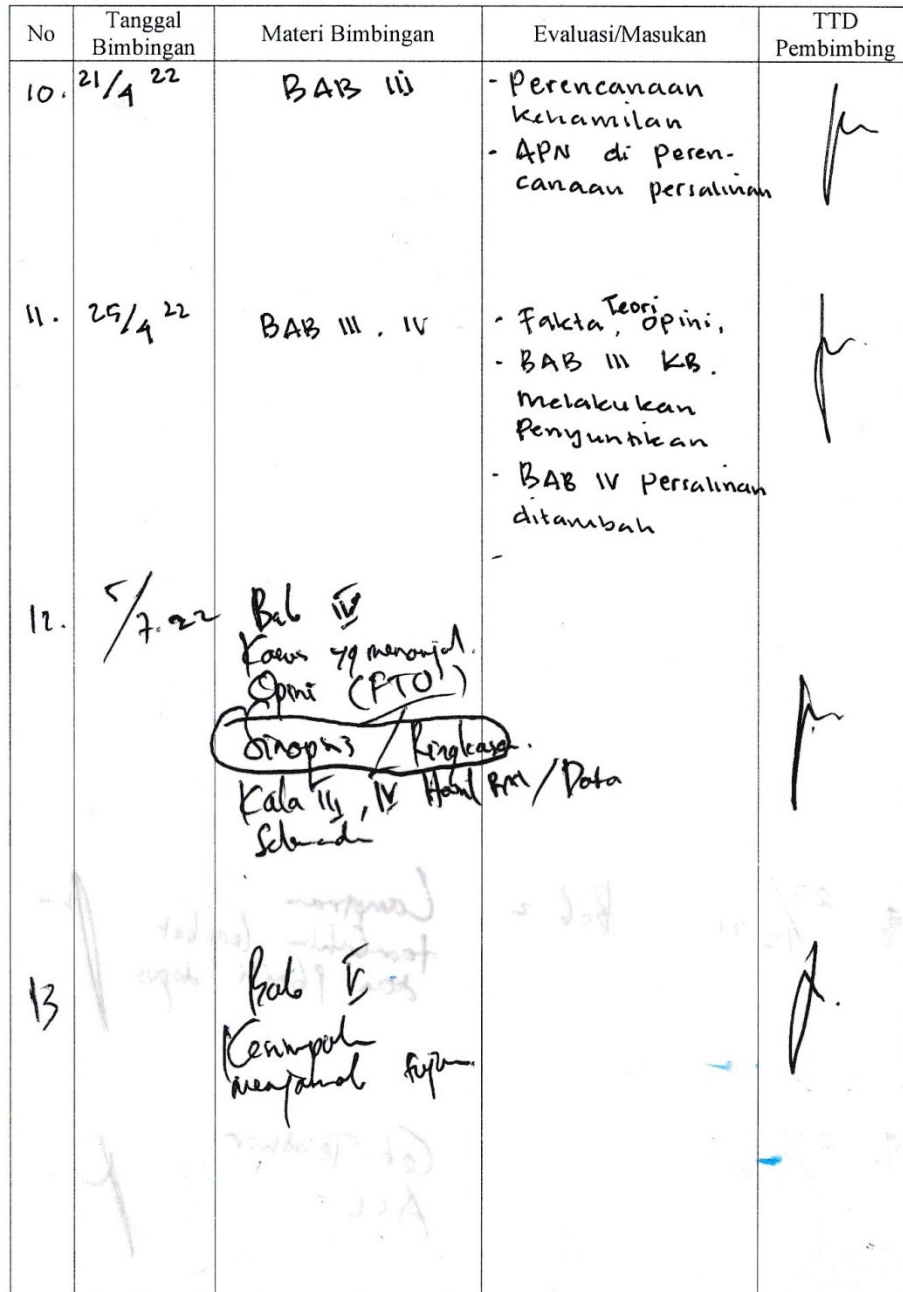 No Tanggal Bimbingan Materi Bimbingan Evaluasi/Masukan TTD Pembimbing
10. 21/4 22 BAB III - Perencanaan
kehamilan
- APN di peren-
canaan persalinan
11. 25/4 22 BAB III . IV - Fakta, Teori Opini,
- BAB III KB.
melakukan
Penyuntikan
- BAB IV persalinan
ditambah
-
12. 5/7.22 Bab IV
Kasus yg menonjol.
Opini (FTO)
Sinopsis / Ringkasan.
Kala III, IV Hasil / Data
13 Bab V
Kesimpulan
menjawab tujuan